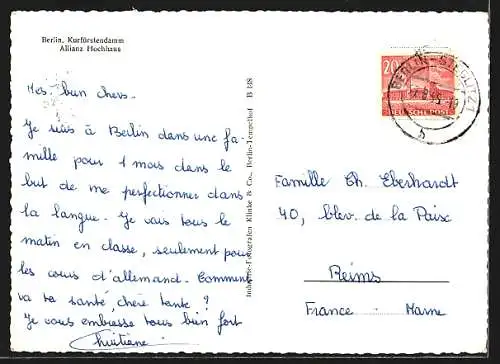 Berlin, Kurfürstendamm
Allianz Hochhaus
Mes bien chers.
Je suis à Berlin dans une fa-
mille pour 1 mois dans le
but de me perfectionner dans
la langue. Je vais tous le
matin en classe, seulement pour
les cours d'allemand. Comment
va ta santé, chère tante ?
Je vous embrasse tous bien fort
Industrie-Fotografen Klinke & Co., Berlin-Tempelhof B
20
DEUTSCHE POST
BERLIN-STEGLITZ 1
h
Famille Ch. Eberhardt
40, blev. de la Paix
Reims
France - Marne